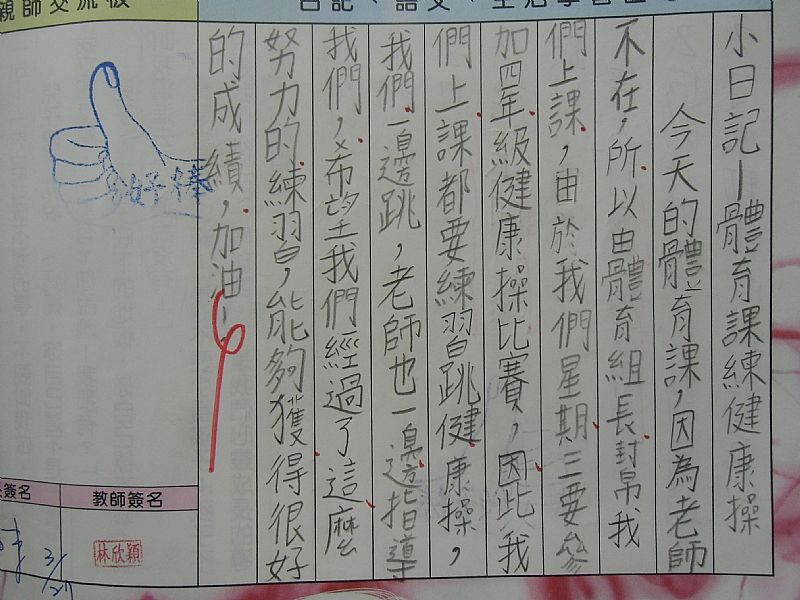 小日記－體育課練健康操
今天的體育課，因為老師
不在，所以由體育組長封帛我
們上課，由於我們星期三要參
加四年級健康操比賽，因此我
們上課都要練習跳健康操，
我們一邊跳，老師也一邊指導
我們，希望我們經過了這麼
努力的練習，能夠獲得很好
的成績，加油！
好棒
教師簽名
簽名
林欣穎
3/21